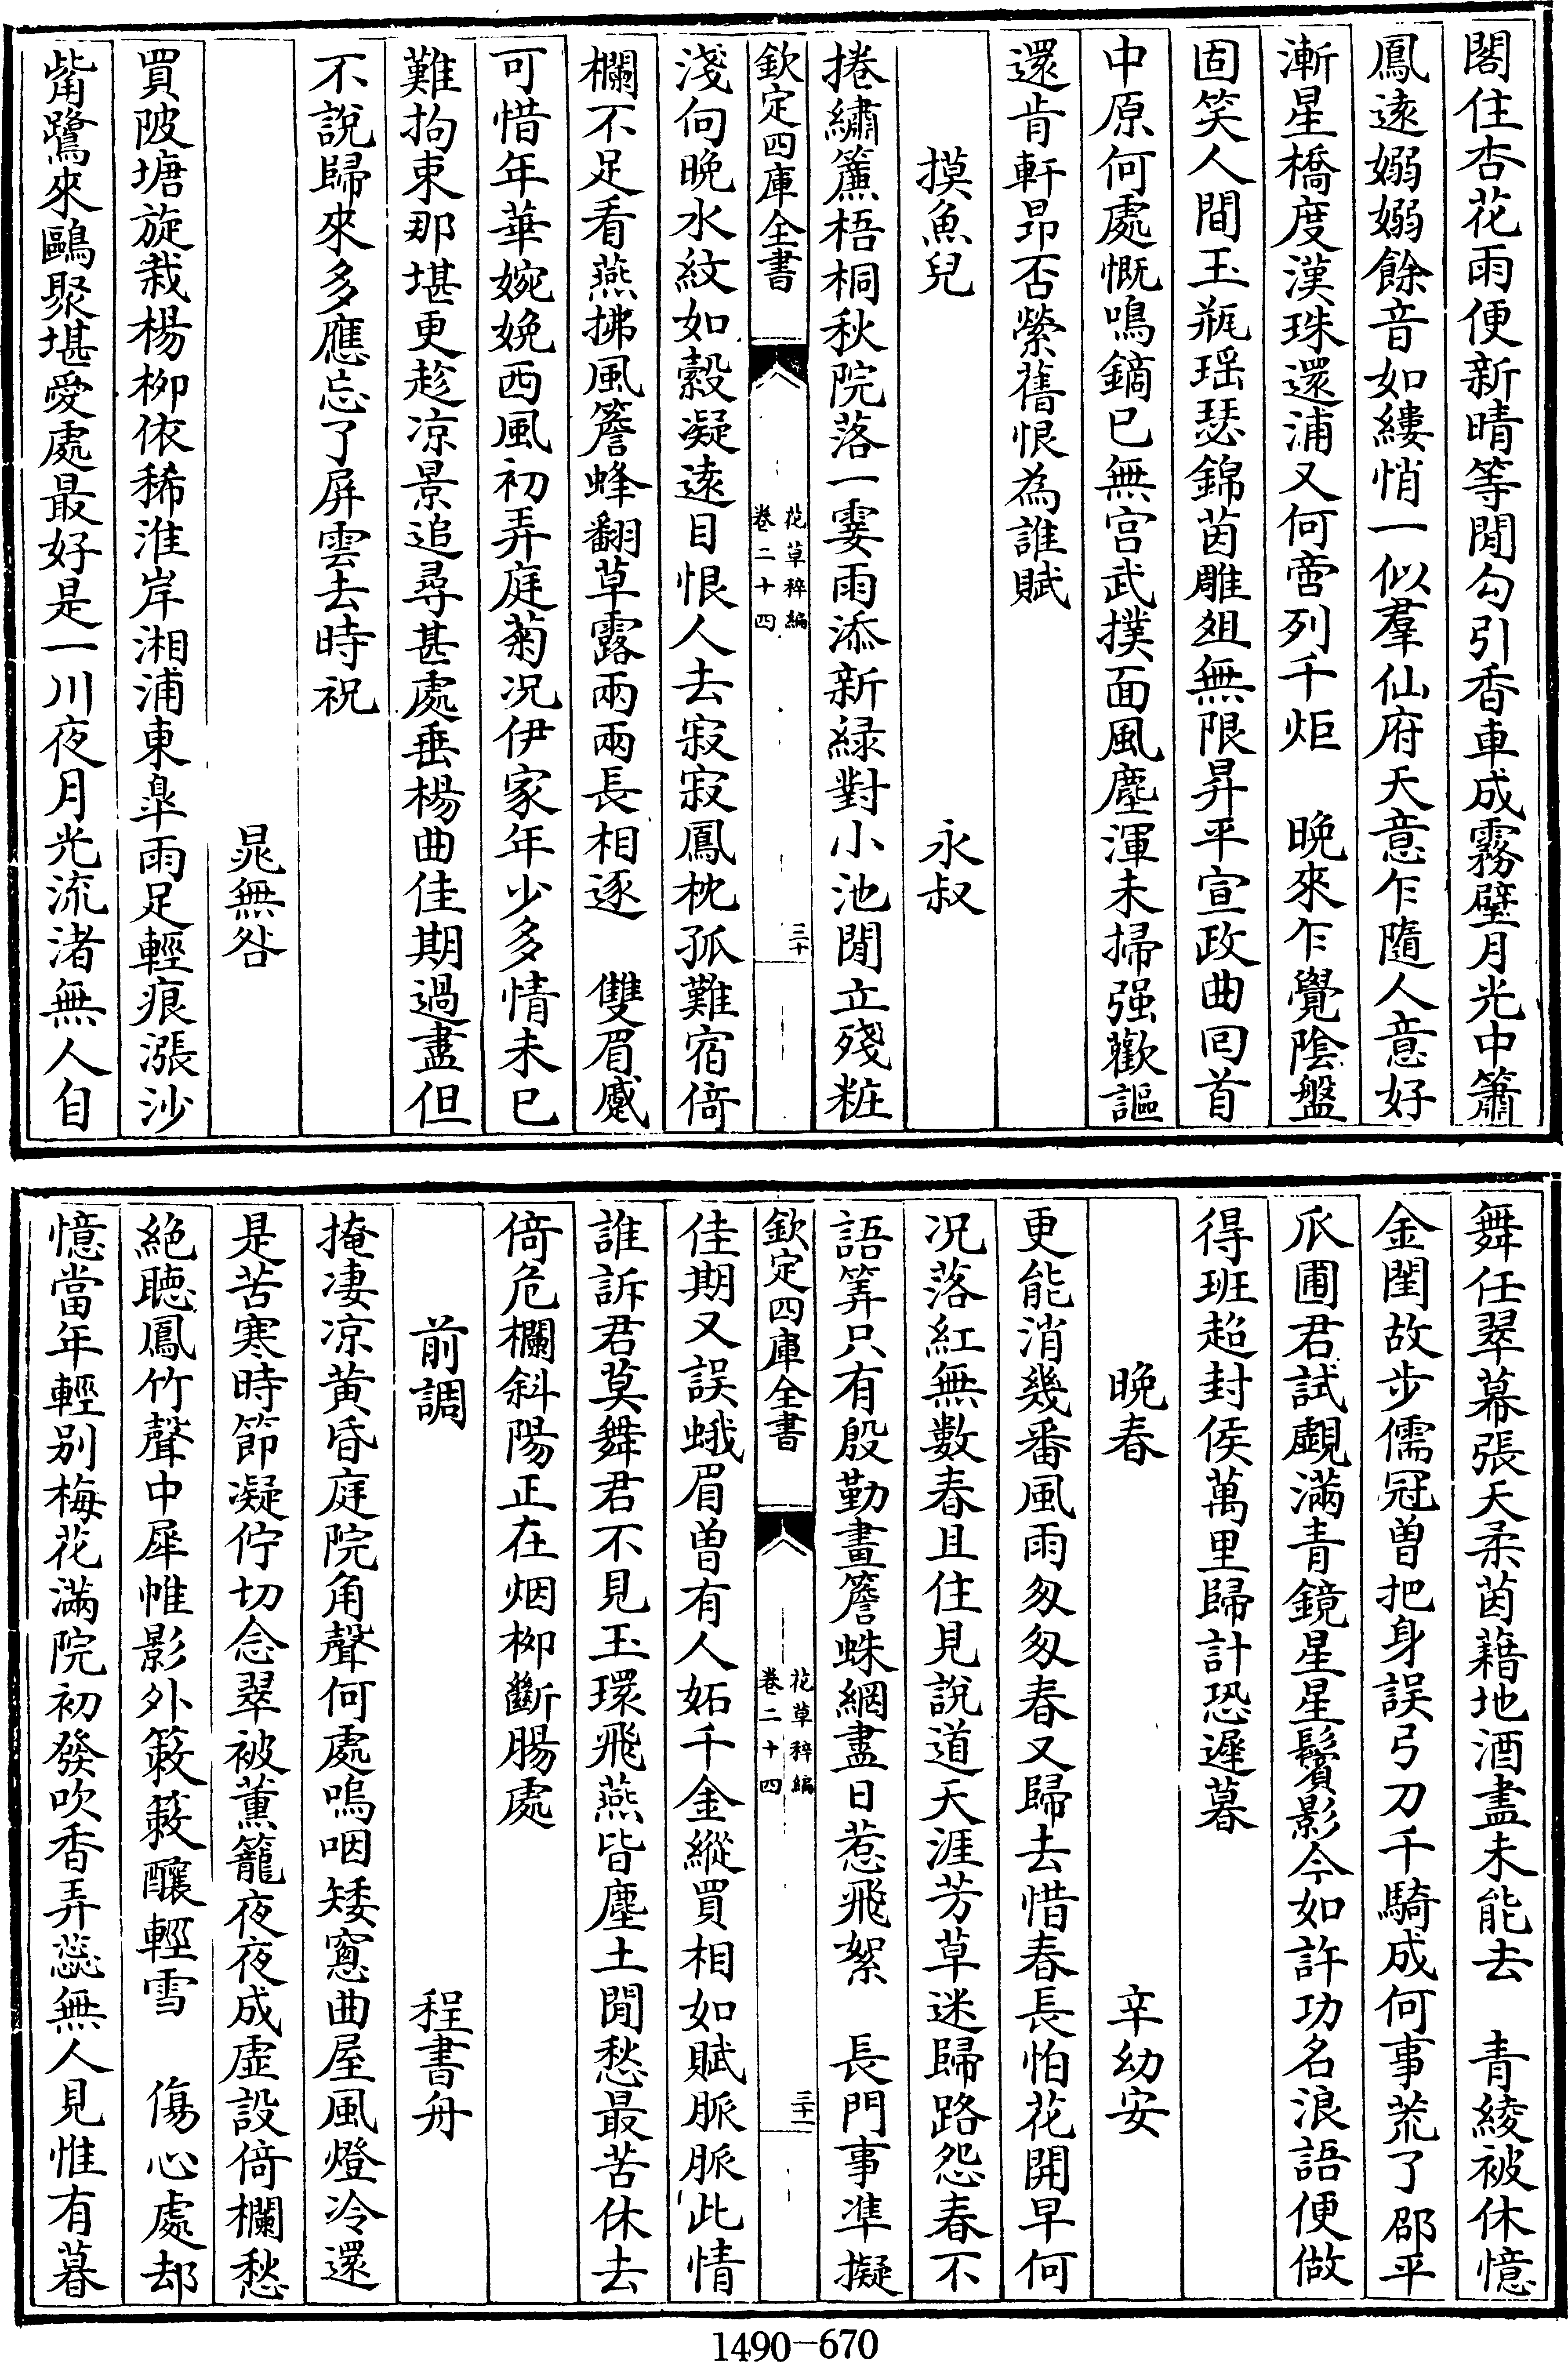 閣住杏花雨便新晴等閒勾引香車成霧璧月光中簫
鳳遠嫋嫋餘音如縷悄一似羣仙府天意乍隨人意好
漸星橋度漢珠還浦又何啻列千炬　晚來乍覺陰盤
固笑人間玉瓶瑶瑟錦茵雕俎無限昇平宣政曲回首
中原何處慨鳴鏑已無宫武撲面風塵渾未掃强歡謳
還肯軒昂否縈舊恨為誰賦
摸魚兒　永叔
捲繡簾梧桐秋院落一霎雨添新緑對小池閒立殘粧
欽定四庫全書　花草稡編　卷二十四　三十
淺向晩水紋如縠凝遠目恨人去寂寂鳳枕孤難宿倚
欄不足看燕拂風簷蜂翻草露兩兩長相逐　雙眉蹙
可惜年華婉娩西風初弄庭菊况伊家年少多情未已
難拘束那堪更趁凉景追尋甚處垂楊曲佳期過盡但
不說歸來多應忘了屏雲去時祝
晁無咎
買陂塘旋栽楊栁依稀淮岸湘浦東臯雨足輕痕漲沙
觜鷺來鷗聚堪愛處最好是一川夜月光流渚無人自
舞任翠幕張天柔茵藉地酒盡未能去　青綾被休憶
金閨故步儒冠曾把身誤弓刀千騎成何事荒了邵平
瓜圃君試覷滿青鏡星星鬢影今如許功名浪語便做
得班超封侯萬里歸計恐遲暮
晚春　辛幼安
更能消幾番風雨匆匆春又歸去惜春長怕花開早何
况落紅無數春且住見說道天涯芳草迷歸路怨春不
語筭只有殷勤畫簷蛛網盡日惹飛絮　長門事準擬
欽定四庫全書　花草稡編　卷二十四　三十一
佳期又誤蛾眉曽有人妬千金縱買相如賦脈脈此情
誰訴君莫舞君不見玉環飛燕皆塵土閒愁最苦休去
倚危欄斜陽正在烟栁斷腸處
前調　程書舟
掩凄凉黄昏庭院角聲何處嗚咽矮窻曲屋風燈冷還
是苦寒時節凝佇切念翠被薰籠夜夜成虚設倚欄愁
絶聴鳳竹聲中犀帷影外簌簌釀輕雪　傷心處却
憶當年輕别梅花滿院初發吹香弄蕊無人見惟有暮
1490-670